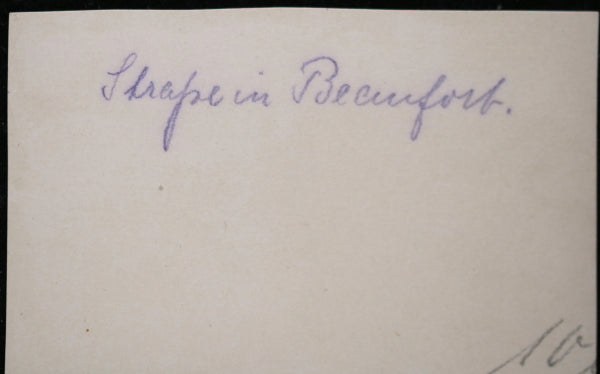 Straße in Beaufort.
10